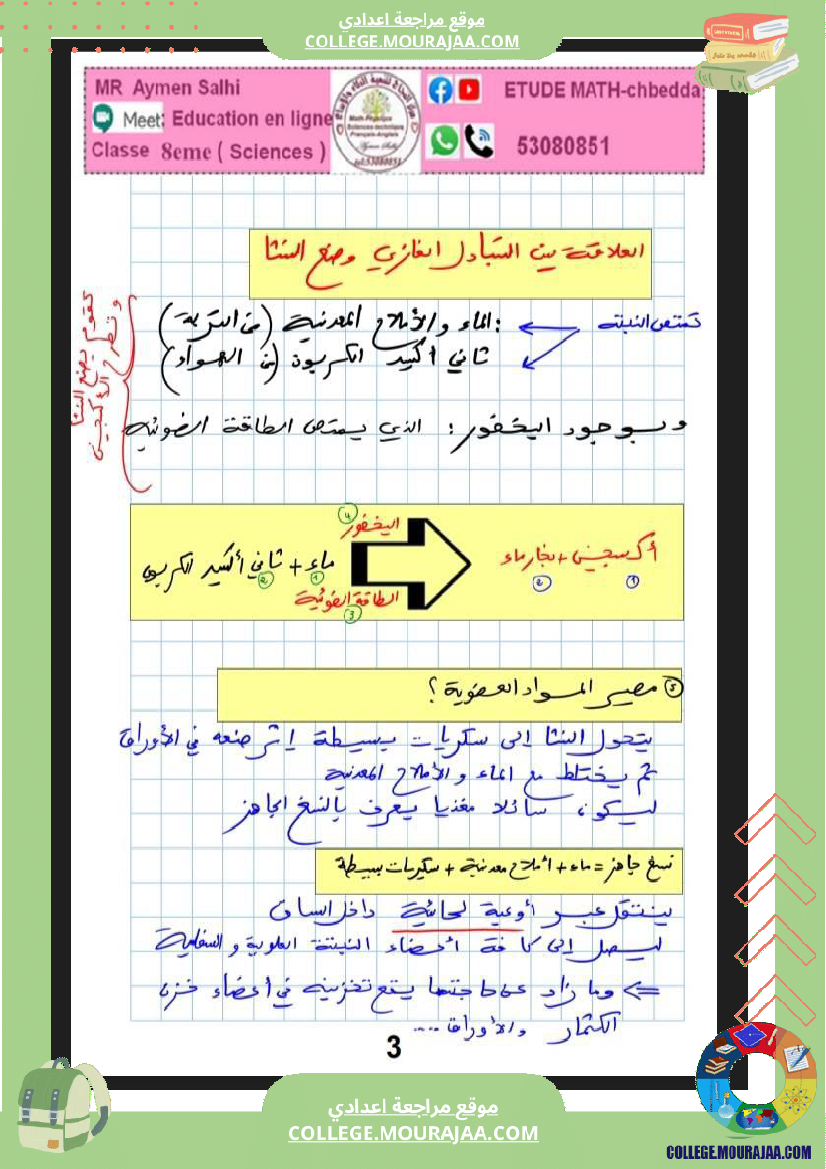 موقع مراجعة اعدادي
COLLEGE.MOURAJAA.COM
MR Aymen Salhi
Meet: Education en ligne
Classe 8eme ( Sciences )
ETUDE MATH-chbedda
53080851
العلاقة بين التبادل الغازي وصنع النشا
تمتص النبتة
: الماء والأملاح المعدنية (من التربة)
ثاني أكسيد الكربون (من الهواء)
وبوجود اليخضور: الذي يمتص الطاقة الضوئية
فتقوم بصنع النشا
وتطرح الأكسجين
اليخضور
4
ماء + ثاني أكسيد الكربون
1
2
الطاقة الضوئية
3
أكسجين + بخار ماء
1
2
5 مصير المواد العضوية ؟
يتحول النشا إلى سكريات بسيطة إثر صنعه في الأوراق
ثم يختلط مع الماء والأملاح المعدنية
ليكون سائلا مغذيا يعرف بالنسغ الجاهز
نسغ جاهز = ماء + أملاح معدنية + سكريات بسيطة
ينتقل عبر أوعية لحائية داخل الساق
ليصل إلى كافة أعضاء النبتة العلوية والسفلية
<= وما زاد عن حاجتها يقع تخزينه في أعضاء خزن
كالثمار والأوراق ....
3
موقع مراجعة اعدادي
COLLEGE.MOURAJAA.COM
COLLEGE.MOURAJAA.COM